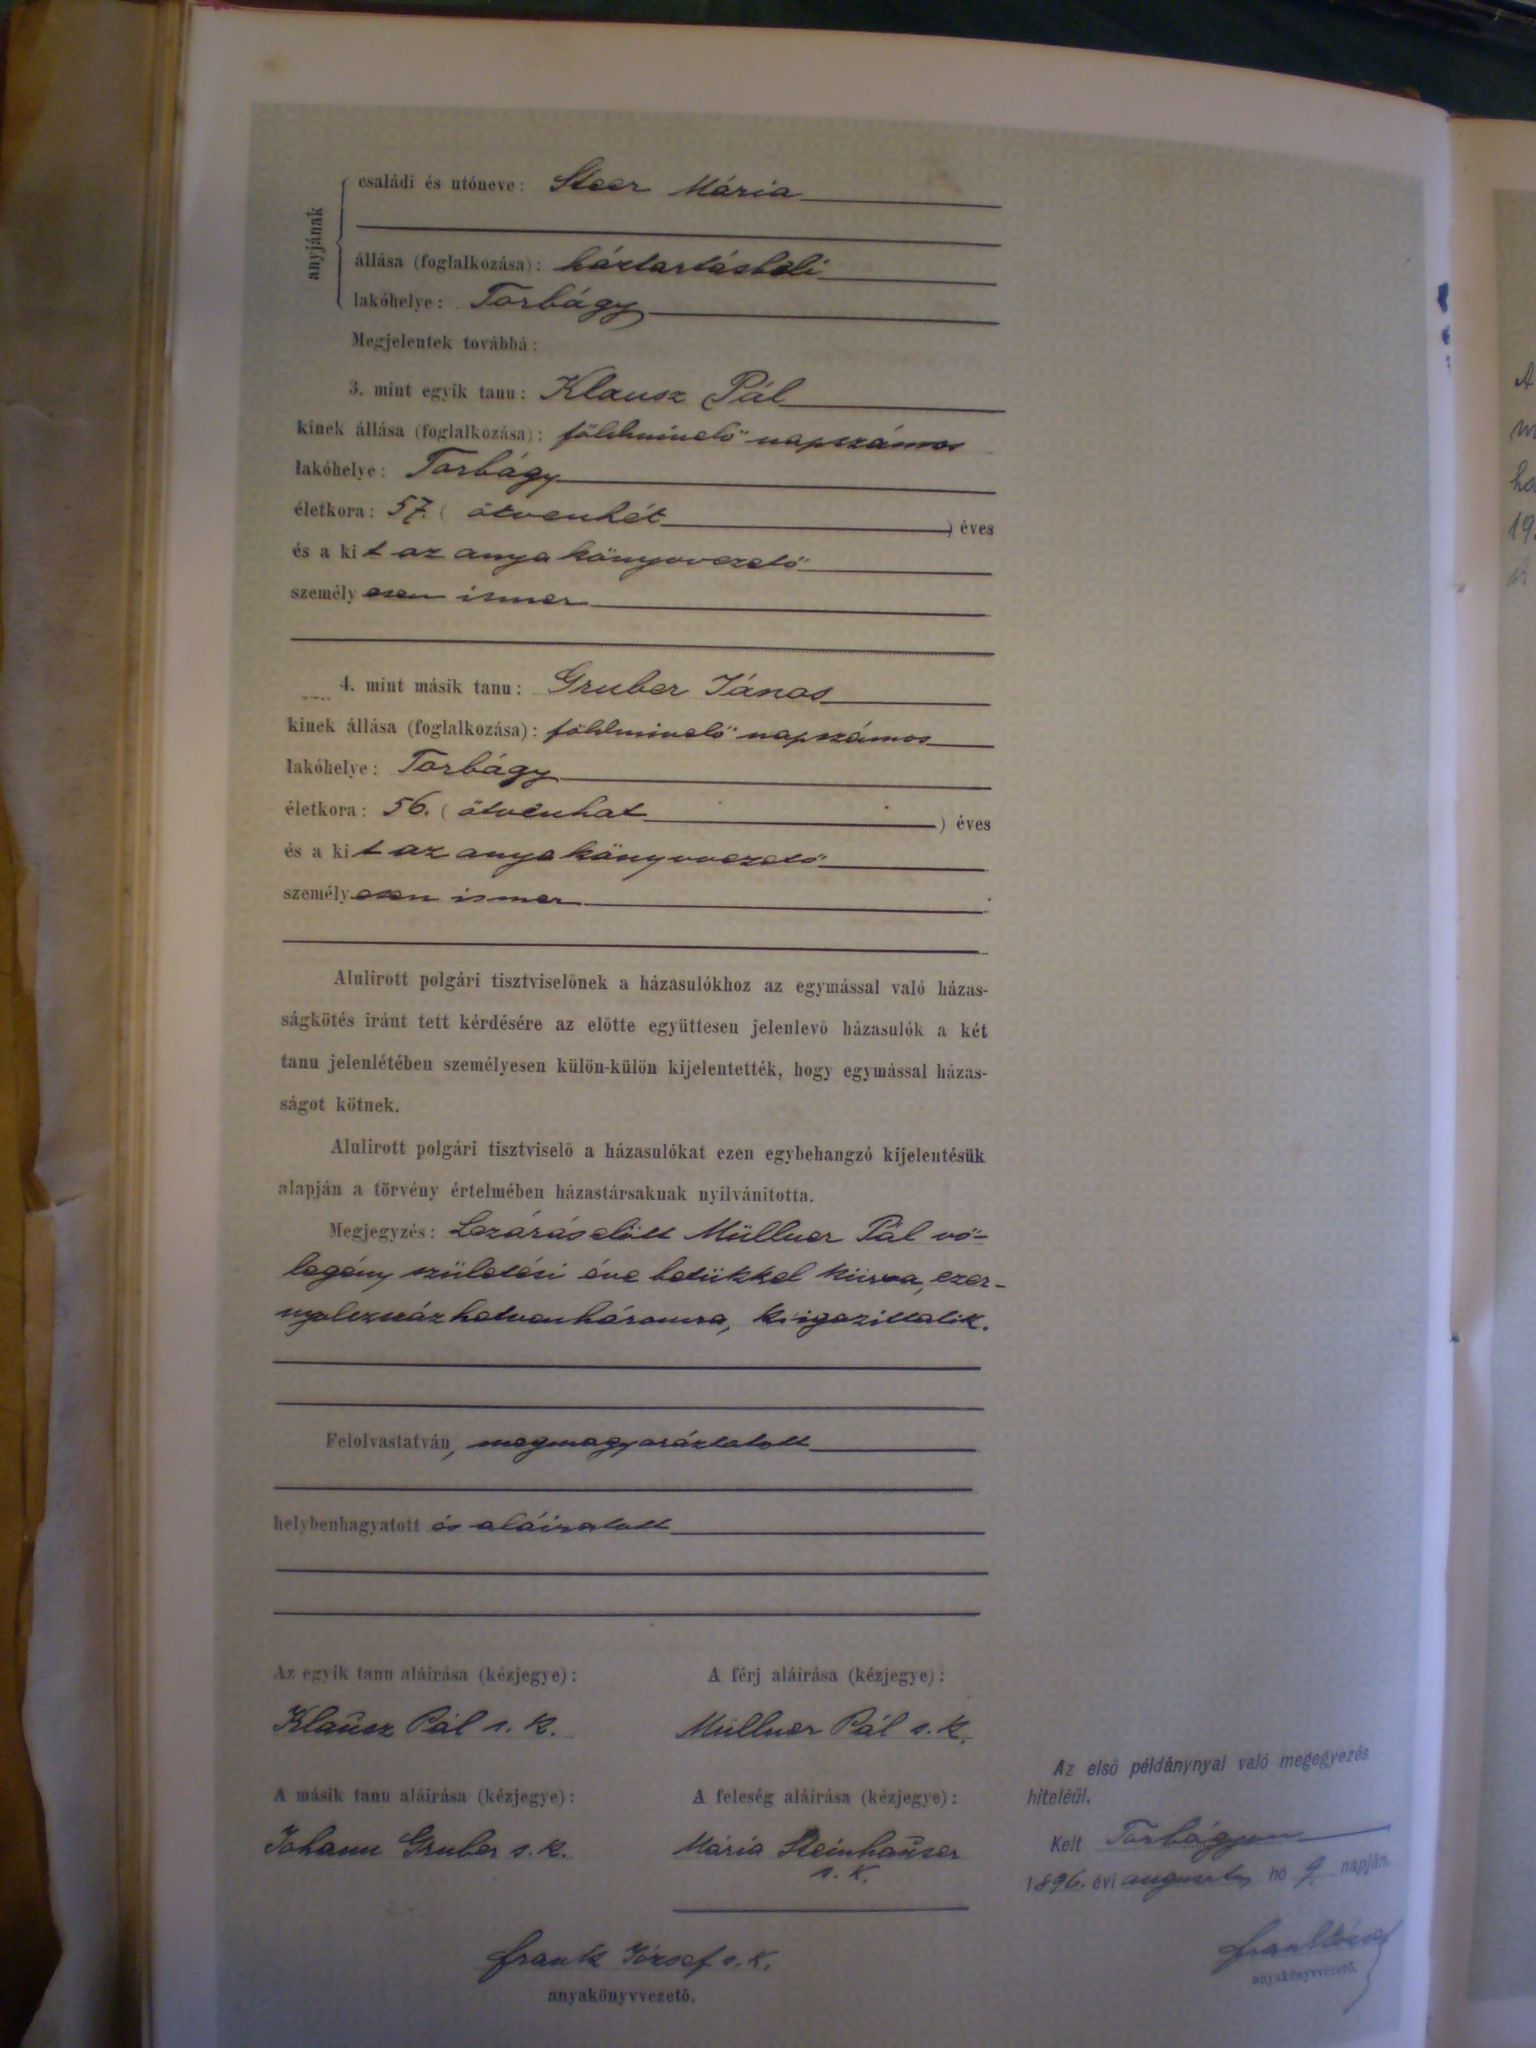 anyjának
családi és utóneve: Steer Mária
állása (foglalkozása): háztartásbeli
lakóhelye: Torbágy
Megjelentek továbbá:
3. mint egyik tanu: Klausz Pál
kinek állása (foglalkozása): földmivelő napszámos
lakóhelye: Torbágy
életkora: 57. (ötvenhét) éves
és a kit az anyakönyvvezető
személyesen ismer
4. mint másik tanu: Gruber János
kinek állása (foglalkozása): földmivelő napszámos
lakóhelye: Torbágy
életkora: 56. (ötvenhat) éves
és a kit az anyakönyvvezető
személyesen ismer
Alulirott polgári tisztviselőnek a házasulókhoz az egymással való házas-
ságkötés iránt tett kérdésére az előtte együttesen jelenlevő házasulók a két
tanu jelenlétében személyesen külön-külön kijelentették, hogy egymással házas-
ságot kötnek.
Alulirott polgári tisztviselő a házasulókat ezen egybehangzó kijelentésük
alapján a törvény értelmében házastársaknak nyilvánitotta.
Megjegyzés: Lezárás előtt Müllner Pál vő-
legény születési éve betükkel kiirva, ezer-
nyolczszáz hetvenháromra, kiigazittatik.
Felolvastatván, megmagyaráztatott
helybenhagyatott és aláiratott
Az egyik tanu aláirása (kézjegye): A férj aláirása (kézjegye):
Klausz Pál s. k. Müllner Pál s. k.
A másik tanu aláirása (kézjegye): A feleség aláirása (kézjegye):
Johann Gruber s. k. Mária Steinhauser
s. k.
Frank József s. k.
anyakönyvvezető.
Az első példánynyal való megegyezés
hiteléül.
Kelt Torbágyon
1896. évi augusztus hó 9 napján.
Frank József
anyakönyvvezető.